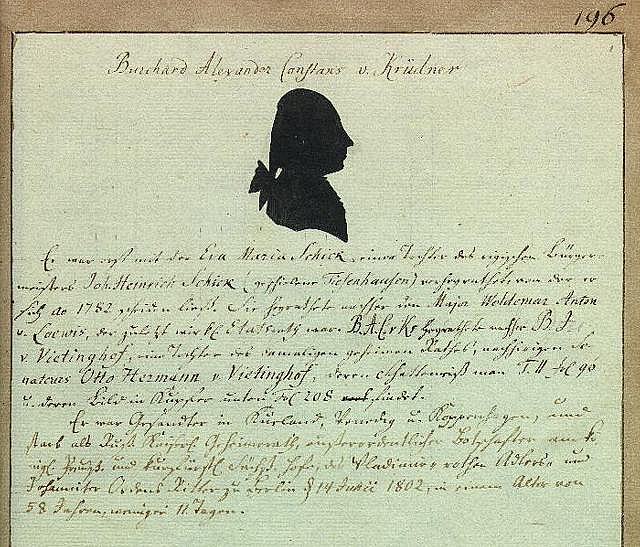 196
Burchard Alexander Constans v. Krüdner
Er war erst mit der Eva Maria Schick, einer Tochter des rigischen Bürger-
meisters Joh. Heinrich Schick (geschiedene Tiesenhausen) verheyrathet, von der er
sich ao 1782 scheiden ließ. Sie heyrathete nachher den Major Woldemar Anton
v. Loewis, der zuletzt Etatsrath war. B. A. C. v. Kr. heyrathete nachher B. J.
v. Vietinghof, eine Tochter des damaligen geheimen Raths, nachherigen Se-
nateurs Otto Hermann v. Vietinghof, deren Schattenriß man T. II fol 96
u. deren Bild in Kupfer unten fol 208 findet.
Er war Gesandter in Kurland, Venedig u. Koppenhagen, und
starb als Russ. Kaiserl. Geheimrath, ausserordentlicher Botschafter am K
nigl. Preuß. und Kurfürstl. Sächs. Hofe, des Vladimir, rothen Adlers, und
Johanniter Ordens Ritter zu Berlin d 14 Junii 1802, in einem Alter von
58 Jahren, weniger 11 Tagen.